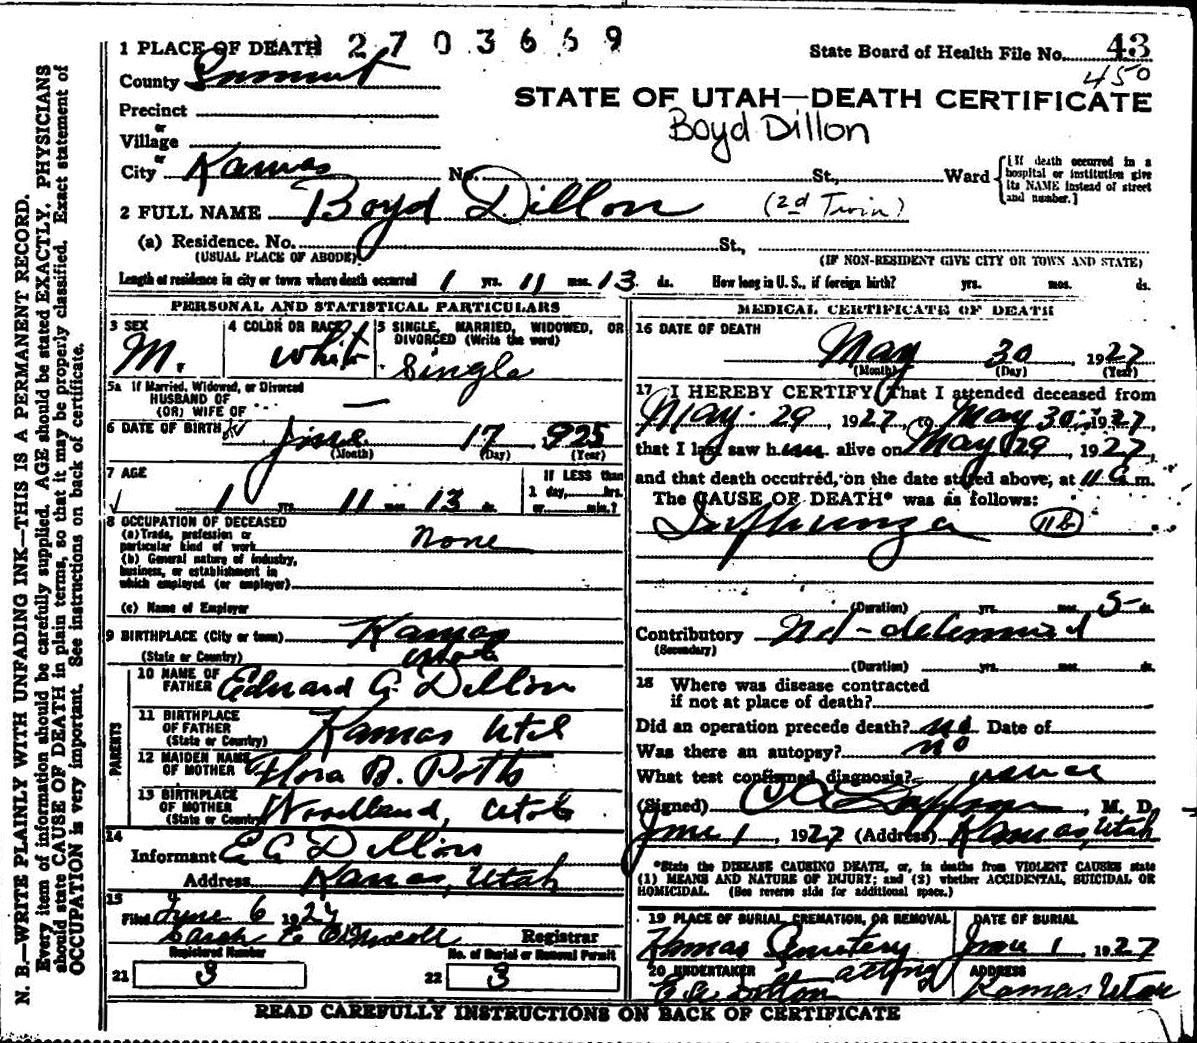 N. B.—WRITE PLAINLY WITH UNFADING INK—THIS IS A PERMANENT RECORD.
Every item of information should be carefully supplied. AGE should be stated EXACTLY. PHYSICIANS
should state CAUSE OF DEATH in plain terms, so that it may be properly classified. Exact statement of
OCCUPATION is very important. See instructions on back of certificate.
1 PLACE OF DEATH 2703669
State Board of Health File No. 43
450
County Summit
STATE OF UTAH—DEATH CERTIFICATE
Precinct
Boyd Dillon
or
Village
or
City Kamas No. St., Ward
[If death occurred in a
hospital or institution give
its NAME instead of street
and number.]
2 FULL NAME Boyd Dillon (2d Twin)
(a) Residence. No. St.,
(USUAL PLACE OF ABODE) (IF NON-RESIDENT GIVE CITY OR TOWN AND STATE)
Length of residence in city or town where death occurred 1 yrs. 11 mos. 13 ds. How long in U.S., if foreign birth? yrs. mos. ds.
PERSONAL AND STATISTICAL PARTICULARS
3 SEX
M.
4 COLOR OR RACE
White
5 SINGLE, MARRIED, WIDOWED, OR
DIVORCED (Write the word)
Single
5a If Married, Widowed, or Divorced
HUSBAND OF
(OR) WIFE OF
6 DATE OF BIRTH June 17 925
(Month) (Day) (Year)
7 AGE
1 yrs. 11 mos. 13 ds.
If LESS than
1 day, hrs.
or min.?
8 OCCUPATION OF DECEASED
(a) Trade, profession or
particular kind of work None
(b) General nature of industry,
business, or establishment in
which employed (or employer)
(c) Name of Employer
9 BIRTHPLACE (City or town) Kamas
(State or Country) Utah
PARENTS
10 NAME OF
FATHER Edward G. Dillon
11 BIRTHPLACE
OF FATHER
(State or Country) Kamas Utah
12 MAIDEN NAME
OF MOTHER Flora B. Potts
13 BIRTHPLACE
OF MOTHER
(State or Country) Woodland, Utah
14
Informant E G Dillon
Address Kamas, Utah
15
Filed June 6 1927
Registrar
Registered Number
21 3
No. of Burial or Removal Permit
22 3
MEDICAL CERTIFICATE OF DEATH
16 DATE OF DEATH
May 30, 1927
(Month) (Day) (Year)
17 I HEREBY CERTIFY That I attended deceased from
May 29, 1927, to May 30, 1927,
that I last saw him alive on May 29, 1927,
and that death occurred, on the date stated above, at 11 a m.
The CAUSE OF DEATH* was as follows:
Influenza 11b
(Duration) yrs. mos. 5 ds.
Contributory Not-determined
(Secondary)
(Duration) yrs. mos. ds.
18 Where was disease contracted
if not at place of death?
Did an operation precede death? no Date of
Was there an autopsy? no
What test confirmed diagnosis?
(Signed) , M. D.
June 1, 1927 (Address) Kamas, Utah
*State the DISEASE CAUSING DEATH, or, in deaths from VIOLENT CAUSES state
(1) MEANS AND NATURE OF INJURY; and (2) whether ACCIDENTAL, SUICIDAL OR
HOMICIDAL. (See reverse side for additional space.)
19 PLACE OF BURIAL, CREMATION, OR REMOVAL
Kamas Cemetery
DATE OF BURIAL
June 1, 1927
20 UNDERTAKER acting
ADDRESS
Kamas, Utah
READ CAREFULLY INSTRUCTIONS ON BACK OF CERTIFICATE